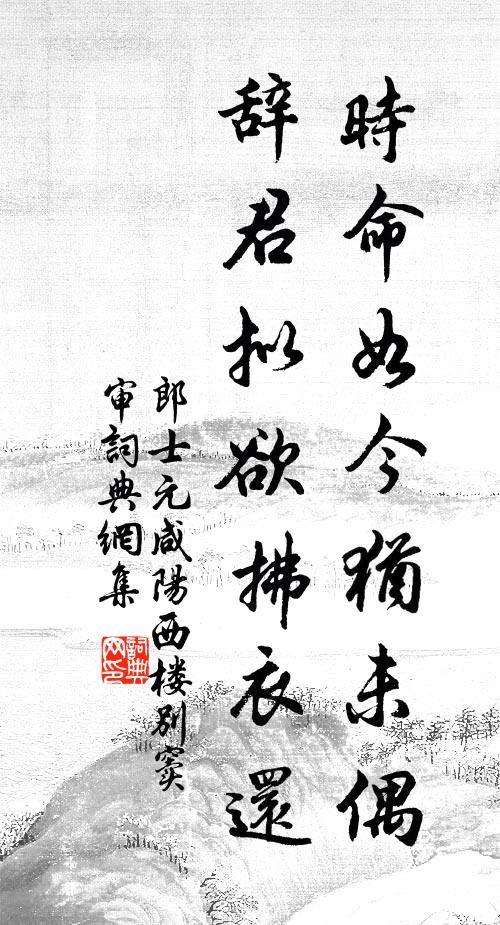 時命如今猶未偶
辞君拟欲拂衣還
郎士元咸陽西楼别窦
审詞典網集
詞典
网印